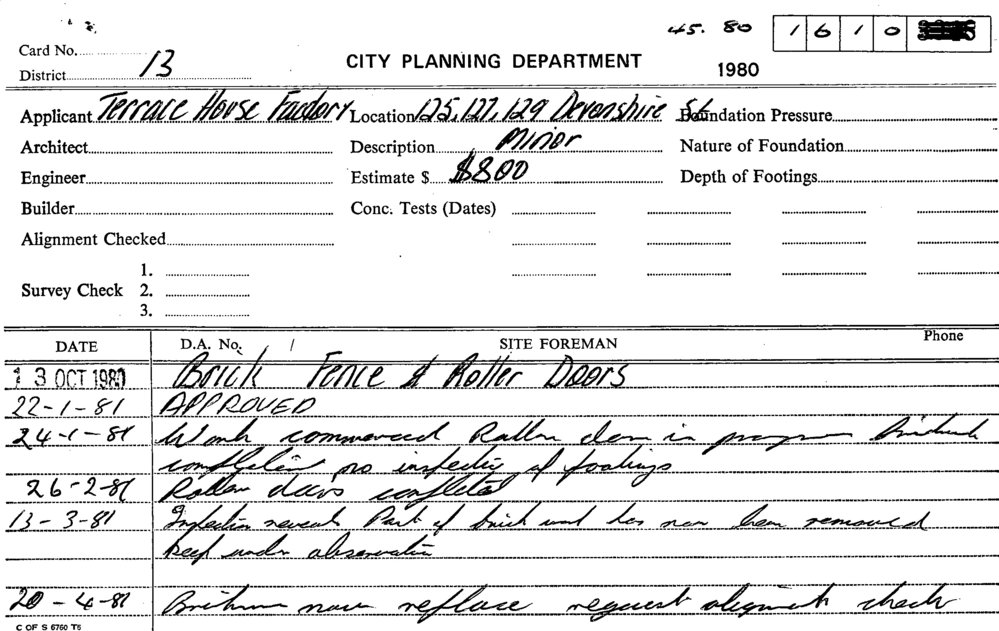 45. 80 1 6 1 0
Card No.
CITY PLANNING DEPARTMENT
District 13
1980
Applicant Terrace House Factory Location 125, 127, 129 Devonshire St Foundation Pressure
Architect Description Minor Nature of Foundation
Engineer Estimate $ $800 Depth of Footings
Builder Conc. Tests (Dates)
Alignment Checked
1.
Survey Check 2.
3.
DATE D.A. No. / SITE FOREMAN Phone
13 OCT 1980 Brick Fence & Roller Doors
22-1-81 APPROVED
24-1-81 Work commenced Roller door in progress Brickwork
completion no inspection of footings
26-2-81 Roller doors completed
13-3-81 Inspection reveals Part of brick work has now been removed
keep under observation
20-4-81 now replace request alignment check
C OF S 6760 T5